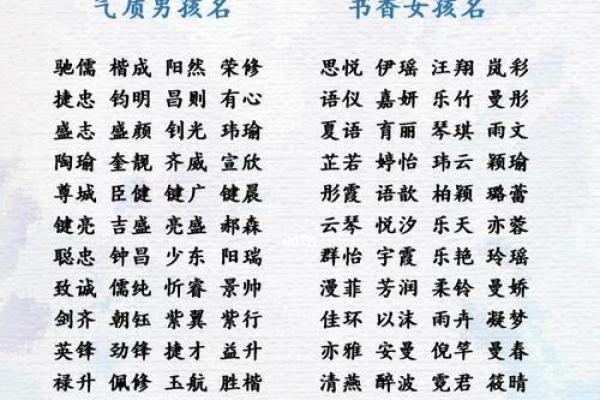 气质男孩名 书香女孩名
驰儒 楷成 阳然 荣修 思悦 伊瑶 汪翔 岚彩
捷忠 钧明 昌则 有心 语仪 嘉妍 乐竹 曼彤
盛志 盛颜 钊光 玮瑜 夏语 育丽 琴琪 雨文
陶瑜 奎靓 齐威 宣欣 芷若 婷怡 玮云 颖瑜
尊城 臣健 键广 键晨 彤霞 语歆 柏颖 璐蕾
键亮 吉盛 亮盛 郝森 云琴 悦汐 乐天 亦蓉
聪忠 钟昌 少东 阳瑞 群怡 宇霞 乐艳 玲瑶
致诚 儒纯 忻睿 景帅 漫菲 芳润 柔铃 曼娇
剑齐 朝钰 紫翼 紫行 佳环 以沫 雨卉 凝梦
英锋 劲锋 捷才 益升 亦雅 安曼 倪竿 曼春
禄升 佩修 玉航 胜楷 清燕 醉波 霓君 筱晴